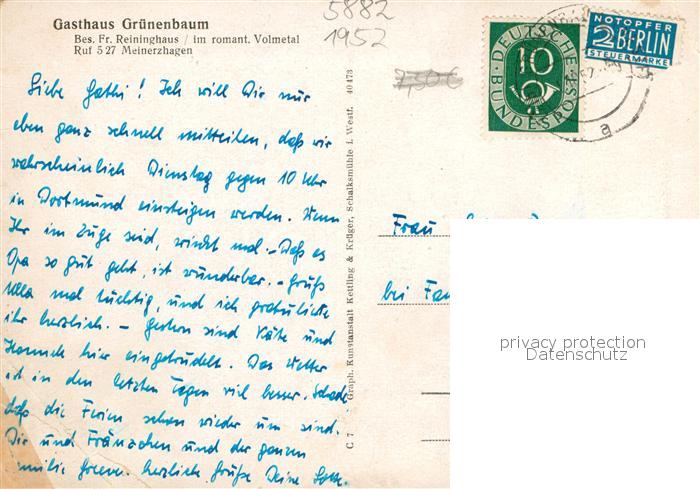 Gasthaus Grünenbaum
Bes. Fr. Reininghaus / im romant. Volmetal
Ruf 5 27 Meinerzhagen
5882
1952
7,50€
DEUTSCHE BUNDESPOST
10
NOTOPFER
2 BERLIN
STEUERMARKE
a
Liebe Gathi! Ich will Dir nur
eben ganz schnell mitteilen, daß wir
wahrscheinlich Dienstag gegen 10 Uhr
in Dortmund einsteigen werden. Wenn
Ihr im Zuge seid, winkt mal. – Daß es
Opa so gut geht, ist wunderbar. – Grüß
Ulla mal tüchtig, und ich gratuliere
ihr herzlich. – Gestern sind Käte und
Hannele hier eingetrudelt. Das Wetter
ist in den letzten Tagen viel besser. Schade
daß die Ferien schon wieder um sind.
Dir und Fränzchen und der ganzen
milie herzliche Grüße Deine
C 7 Graph. Kunstanstalt Kettling & Krüger, Schalksmühle i. Westf. 40 473
Frau
bei Fam
privacy protection
Datenschutz